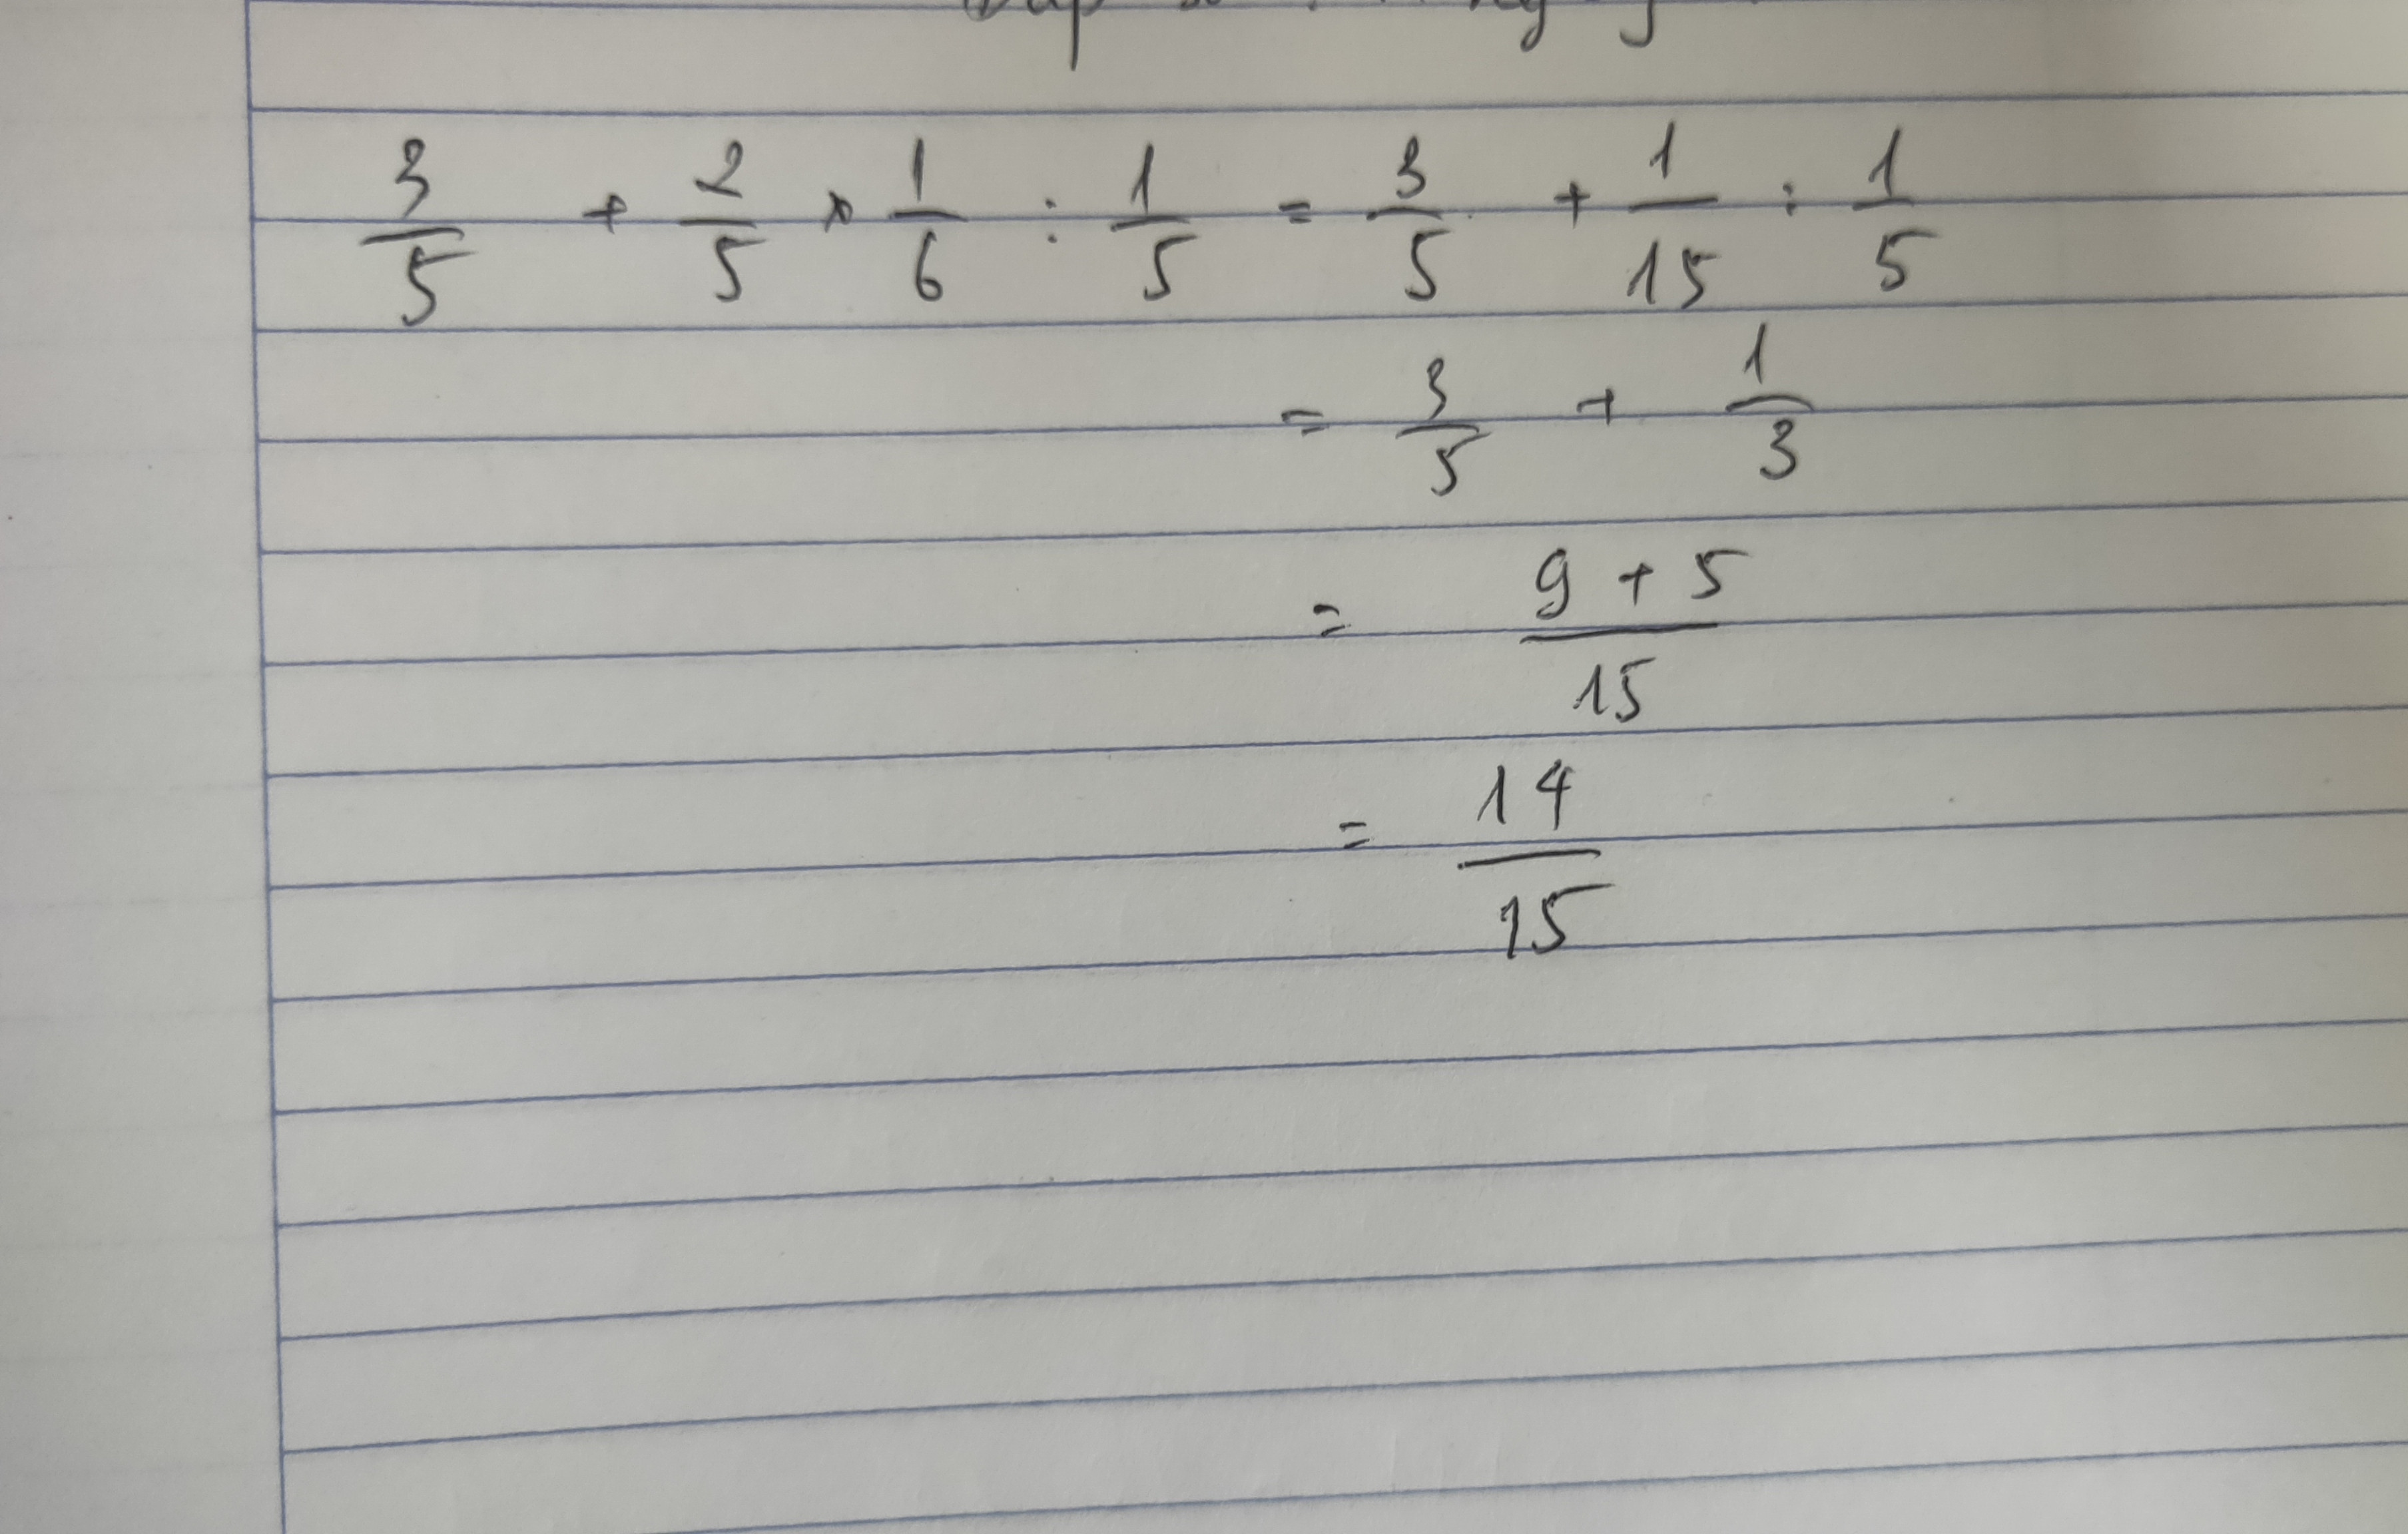 3/5 + 2/5 × 1/6 : 1/5 = 3/5 + 1/15 : 1/5
= 3/5 + 1/3
= 9 + 5 / 15
= 14/15